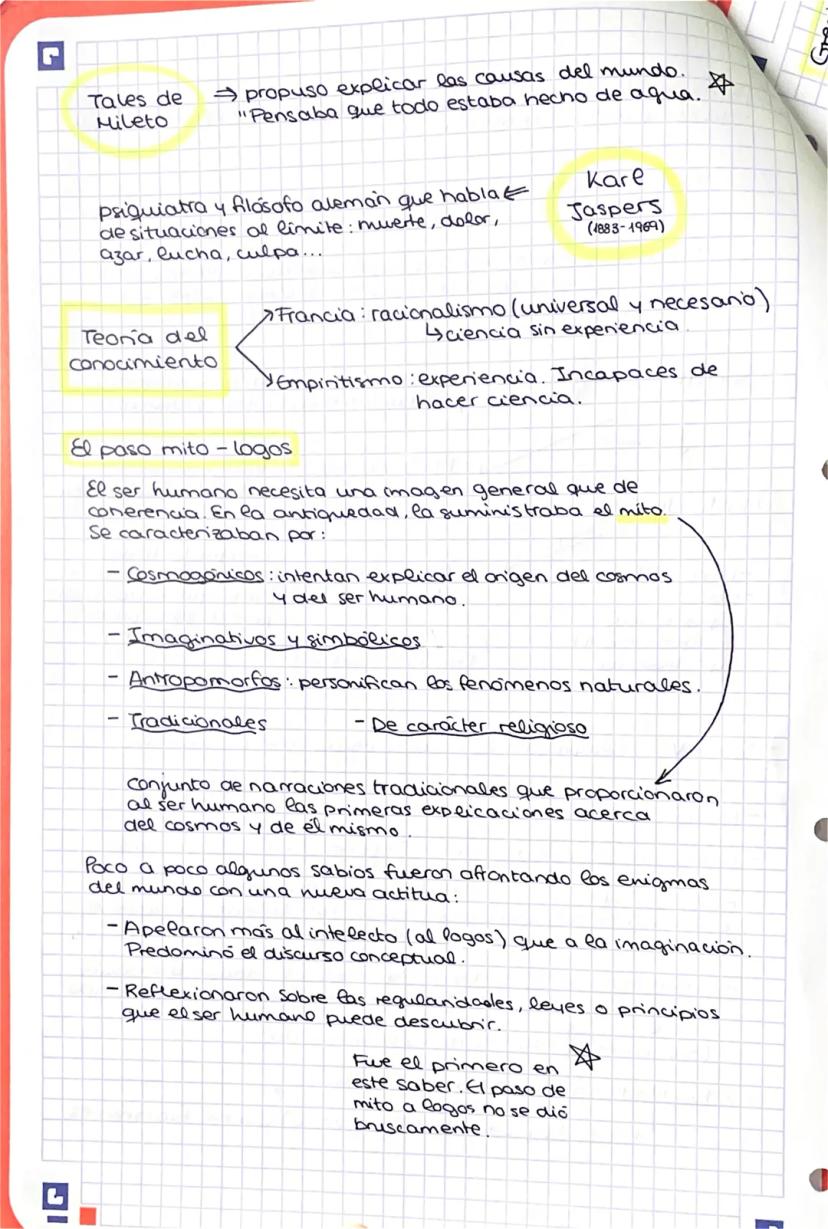 Tales de
Mileto
⇒ propuso explicar las causas del mundo. ☆
"Pensaba que todo estaba hecho de agua.
Karl
Jaspers
(1883-1969)
psiquiatra y filósofo alemán que habla ⇐
de situaciones al límite: muerte, dolor,
azar, lucha, culpa...
Teoría del
conocimiento
Francia: racionalismo (universal y necesario)
↳ ciencia sin experiencia.
Empiritismo: experiencia. Incapaces de
hacer ciencia.
El paso mito - logos
El ser humano necesita una imagen general que de
coherencia. En la antiguedad, la suministraba el mito.
Se caracterizaban por:
- Cosmogónicos: intentan explicar el origen del cosmos
y del ser humano.
- Imaginativos y simbólicos
- Antropomorfos: personifican los fenómenos naturales.
- Tradicionales - De carácter religioso
conjunto de narraciones tradicionales que proporcionaron
al ser humano las primeras explicaciones acerca
del cosmos y de él mismo.
Poco a poco algunos sabios fueron afrontando los enigmas
del mundo con una nueva actitud:
- Apelaron más al intelecto (al logos) que a la imaginación.
Predominó el discurso conceptual.
- Reflexionaron sobre las regularidades, leyes o principios
que el ser humano puede descubrir.
Fue el primero en ☆
este saber. El paso de
mito a logos no se dió
bruscamente.